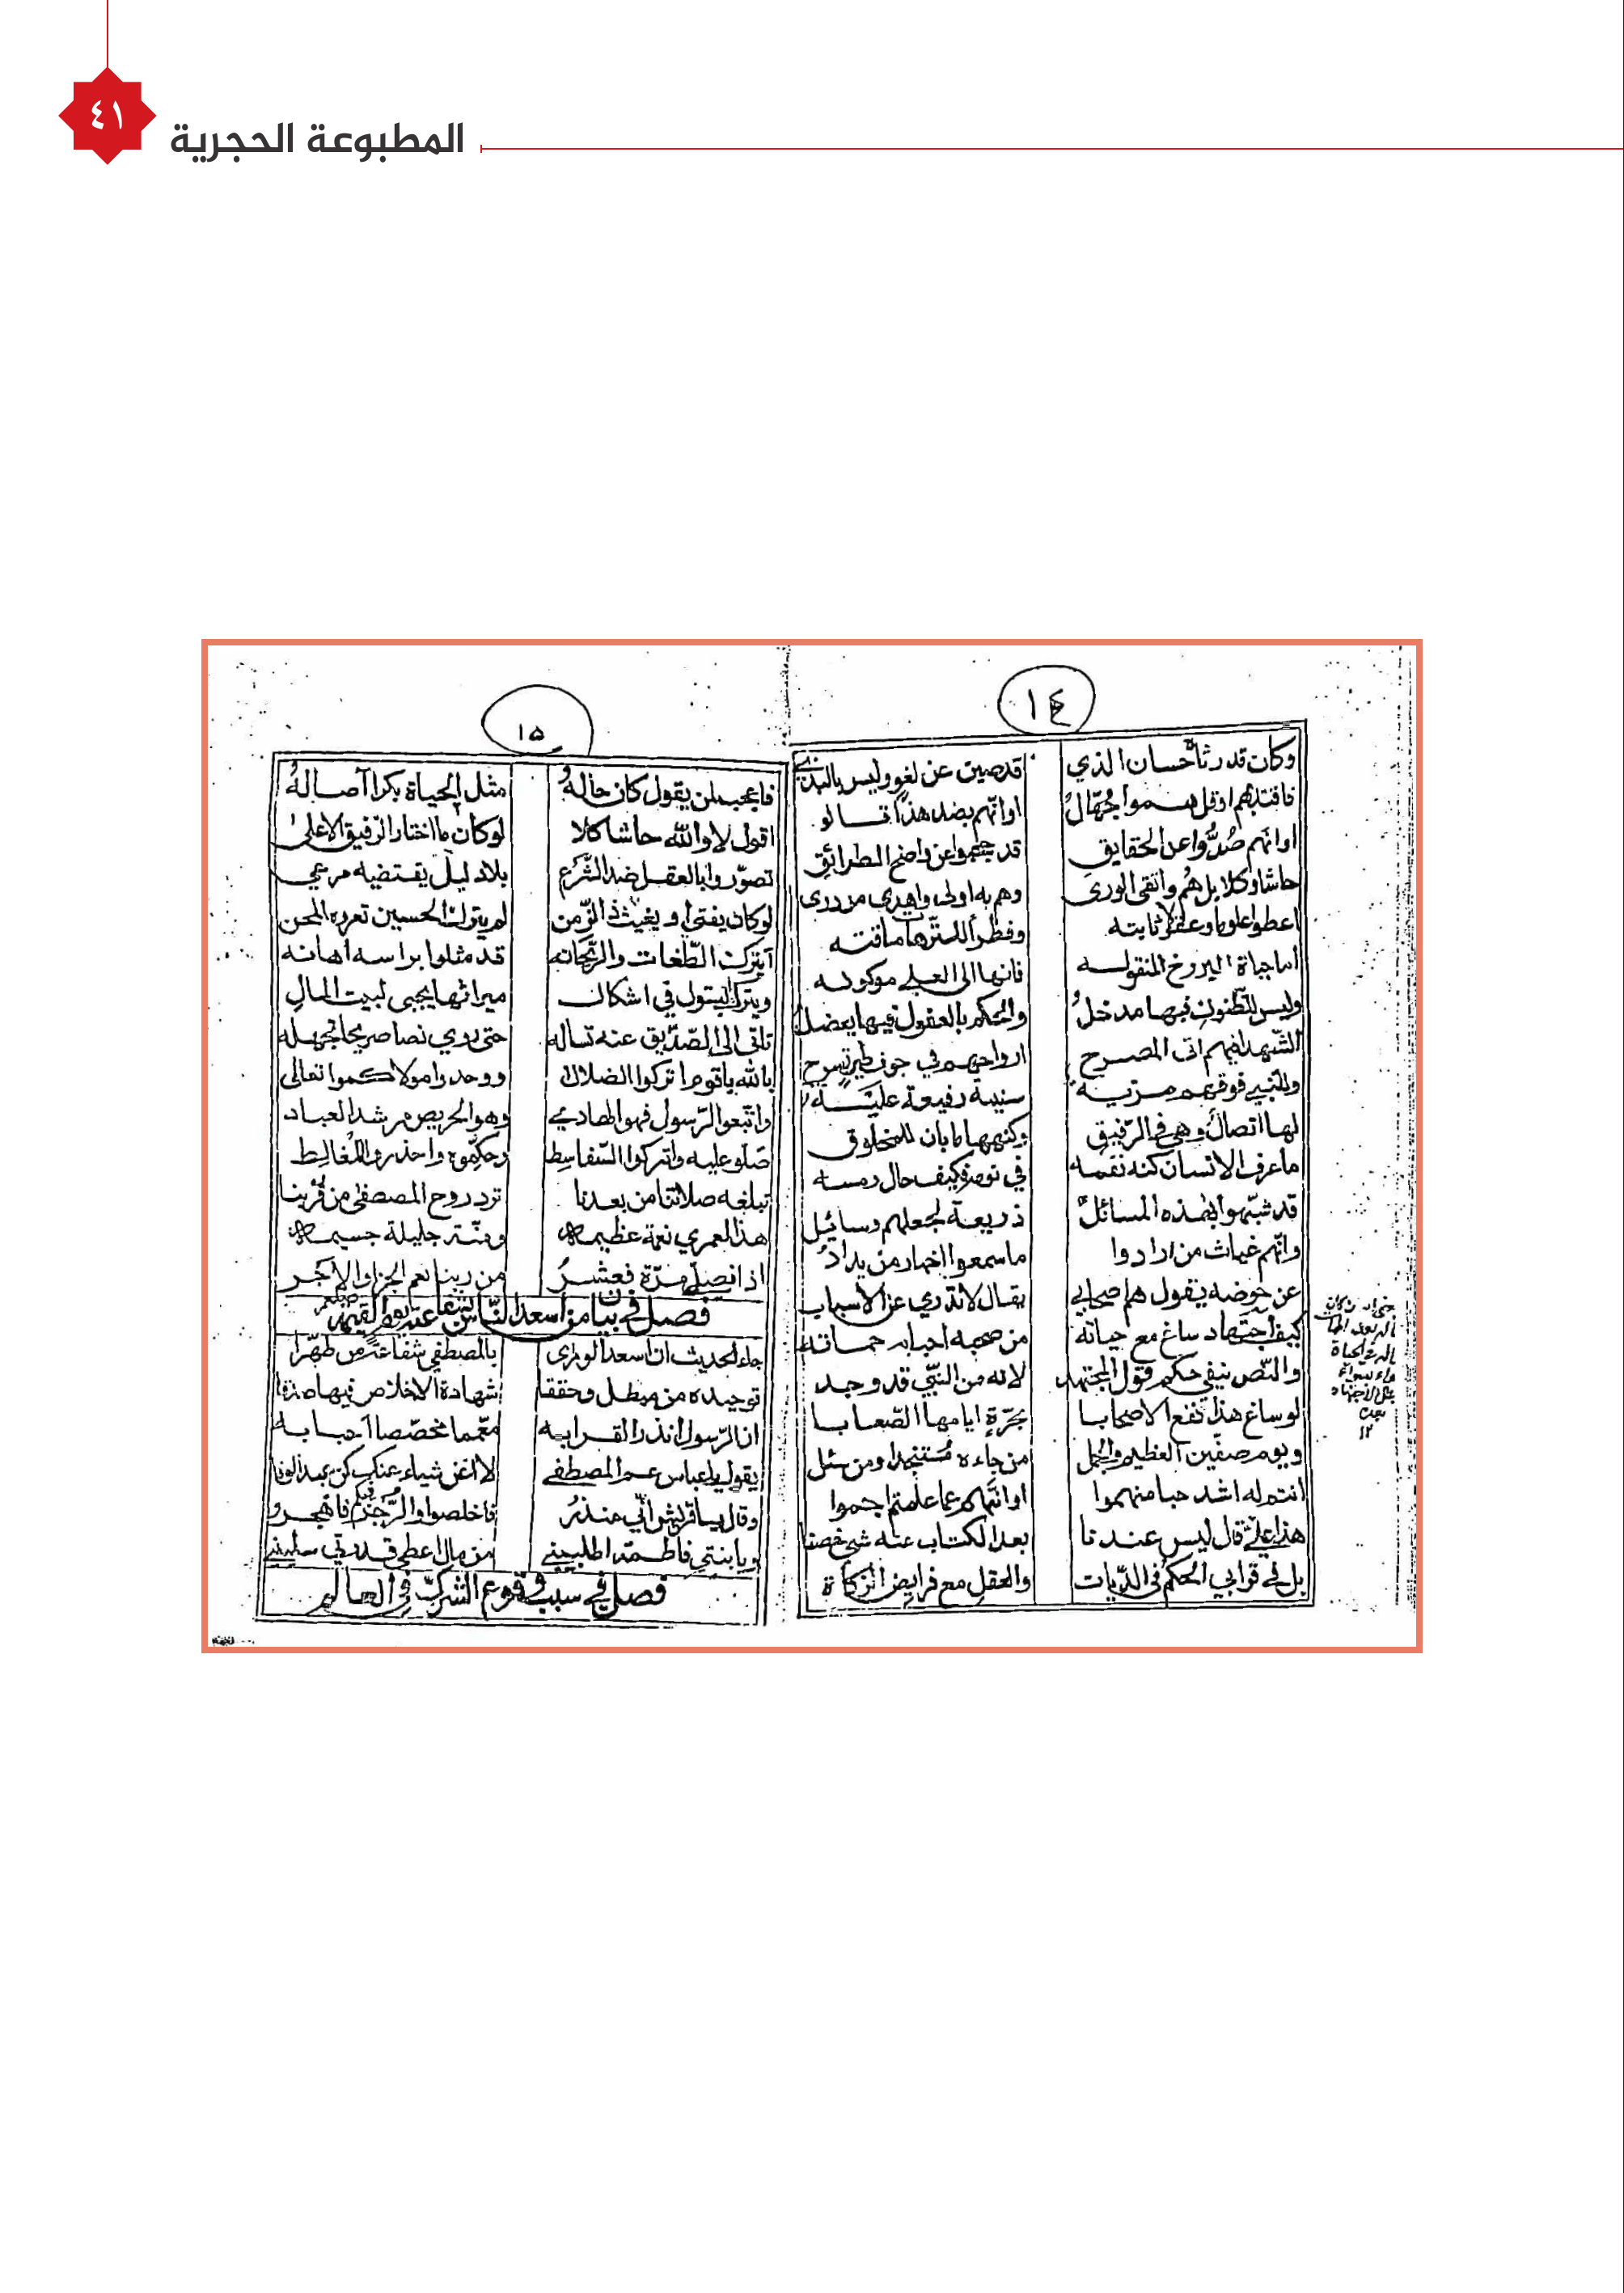 ٤١
المطبوعة الحجرية
١٤
وكان قد رثاه حسان الذي قد صين عن لغو وليس بالبذي
فاقتدهم او قل هموا جهال او انهم بضد هذا قالو
او انهم صدوا عن الحقايق قد جمحوا عن واضح الطرائق
حاشا وكلا بل هم واتقى الورى وهم به اولى واهدى من درى
اعطوا علوما وعقولا ثابته
اما حياة البرزخ المنقوله فانها الى العلي موكوله
وليس للظنون فيها مدخل والحكم بالعقول فيها يعضل
الشهدا فيهم اتى المصرح ارواحهم في جوف طير تسرح
وللنبي فوقهم مزية سنية رفيعة علية
لها اتصال وهي في الرفيق وكنهها ما بان للمخلوق
ما عرف الانسان كنه نفسه في نومه فكيف حال رمسه
قد شبهوا بهذه المسائل ذريعة لجعلهم وسائل
وانهم غياث من ارادوا ما سمعوا اخبار من يذاد
عن حوضه يقول هم صحابي يقال لا تدري عن الاسباب
كيف اجتهاد ساغ مع حياته من صحبه احبابه حماته
والنص ينفي حكم قول المجتهد لانه من النبي قد وجد
لو ساغ هذا نفع الاصحابا بحرة ايامها الصعابا
ويوم صفين العظيم والجمل من جاءه مستنجدا ومن سئل
انتم له اشد حبا منهموا او انتم عما علمتم اجموا
هذا علي قال ليس عندنا بعد الكتاب عنه شيئ خصنا
بل في قرابي الحكم في الديات والعقل مع فرايض الزكاة
١٢
١٥
فاعجب لمن يقول كان حاله مثل الحياة بكرا آصاله
اقول لا والله حاشا كلا لو كان ما اختار الرفيق الاعلى
تصوروا بالعقل ضد الشرع بلا دليل يقتضيه مرعي
لو كان يفتي او يغيث ذا الزمن لم يترك الحسين تعروه المحن
أيترك الطغات والريحانه قد مثلوا براسه أهانه
ويترك البتول في اشكال ميراثها يجبى لبيت المال
تلقى الى الصديق عنه تساله حتى روي نصا صريحا تجهله
بالله ياقوم اتركوا الضلالا ووحدوا مولاكموا تعالى
واتبعوا الرسول فهو الهادي وهو الحريص مرشد العباد
صلو عليه واتركوا السفاسطا وحكموه واحذروا المغالطا
تبلغه صلاتنا من بعدنا ترد روح المصطفى من قربنا
هذا لعمري نعمة عظيمه ومنة جليلة جسيمه
اذا نصلي مرة فعشر من ربنا نعم الجزا والاجر
فصل في بيان من اسعد الناس بشفاعته صلعم يوم القيمة
جاء الحديث ان اسعد الورى بالمصطفى شفاعة من طهرا
توحيده من مبطل وحققا شهادة الاخلاص فيها صدقا
ان الرسول انذر القرابه معمما مخصصا احبابه
يقول يا عباس عم المصطفى لا اغن شيئا عنك كن عبد الوفا
وقال يا قريش اني منذر فاخلصوا والرجز فاهجروا
ويا بنتي فاطمة اطلبيني من مال اعطي قدرتي سليني
فصل في سبب وقوع الشرك في العالم